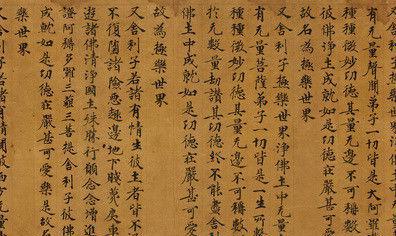 有无量聲聞弟子一切皆是大阿羅
種種微妙功德其量无邊不可稱數
彼佛淨土成就如是功德莊嚴甚可
故名為極樂世界
又舍利子極樂世界淨佛土中无
有无量菩薩弟子一切皆是一生所
種種微妙功德其量无邊不可稱數
於无數量劫讚其功德終不能盡舍利
佛土中成就如是功德莊嚴甚可愛
故為極樂世界
又舍利子若諸有情生彼土者皆不
不復墮諸險惡趣邊地下賤蔑戾車
遊諸佛清淨國土殊勝行願念念增進
證阿耨多羅三藐三菩提舍利子彼佛
成就如是功德莊嚴甚可愛樂是故名
樂世界